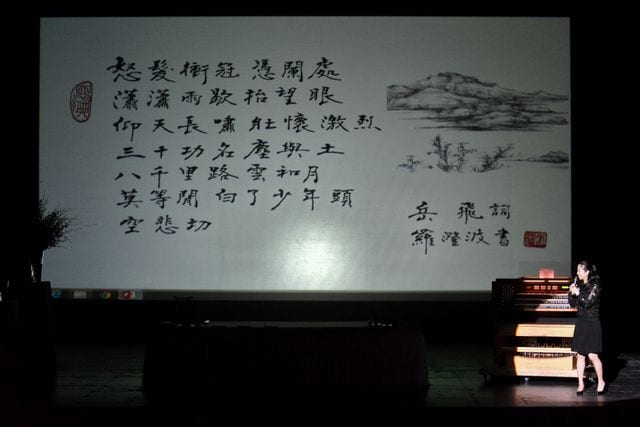 怒髮衝冠 憑闌處
瀟瀟雨歇抬望眼
仰天長嘯壯懷激烈
三十功名塵與土
八千里路雲和月
莫等閒白了少年頭
空悲切
岳飛詞
羅澄波書